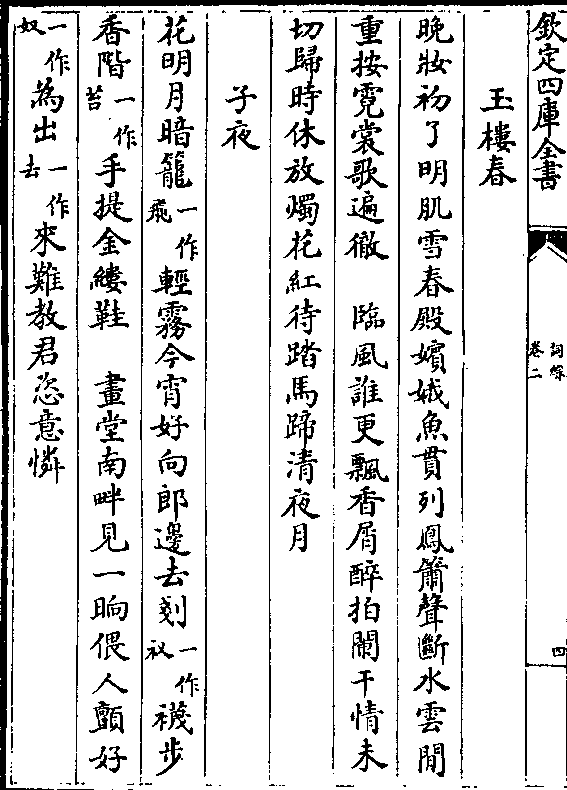 欽定四庫全書
詞綜
卷二
四
玉樓春
晚妝初了明肌雪春殿嬪娥魚貫列鳳簫聲斷水雲閒
重按霓裳歌遍徹　臨風誰更飄香屑醉拍闌干情未
切歸時休放燭花紅待踏馬蹄清夜月
子夜
花明月暗籠一作飛輕霧今宵好向郎邊去刬一作衩襪步
香階一作苔手提金縷鞋　畫堂南畔見一晌偎人顫好
一作奴為出一作去來難教君恣意憐